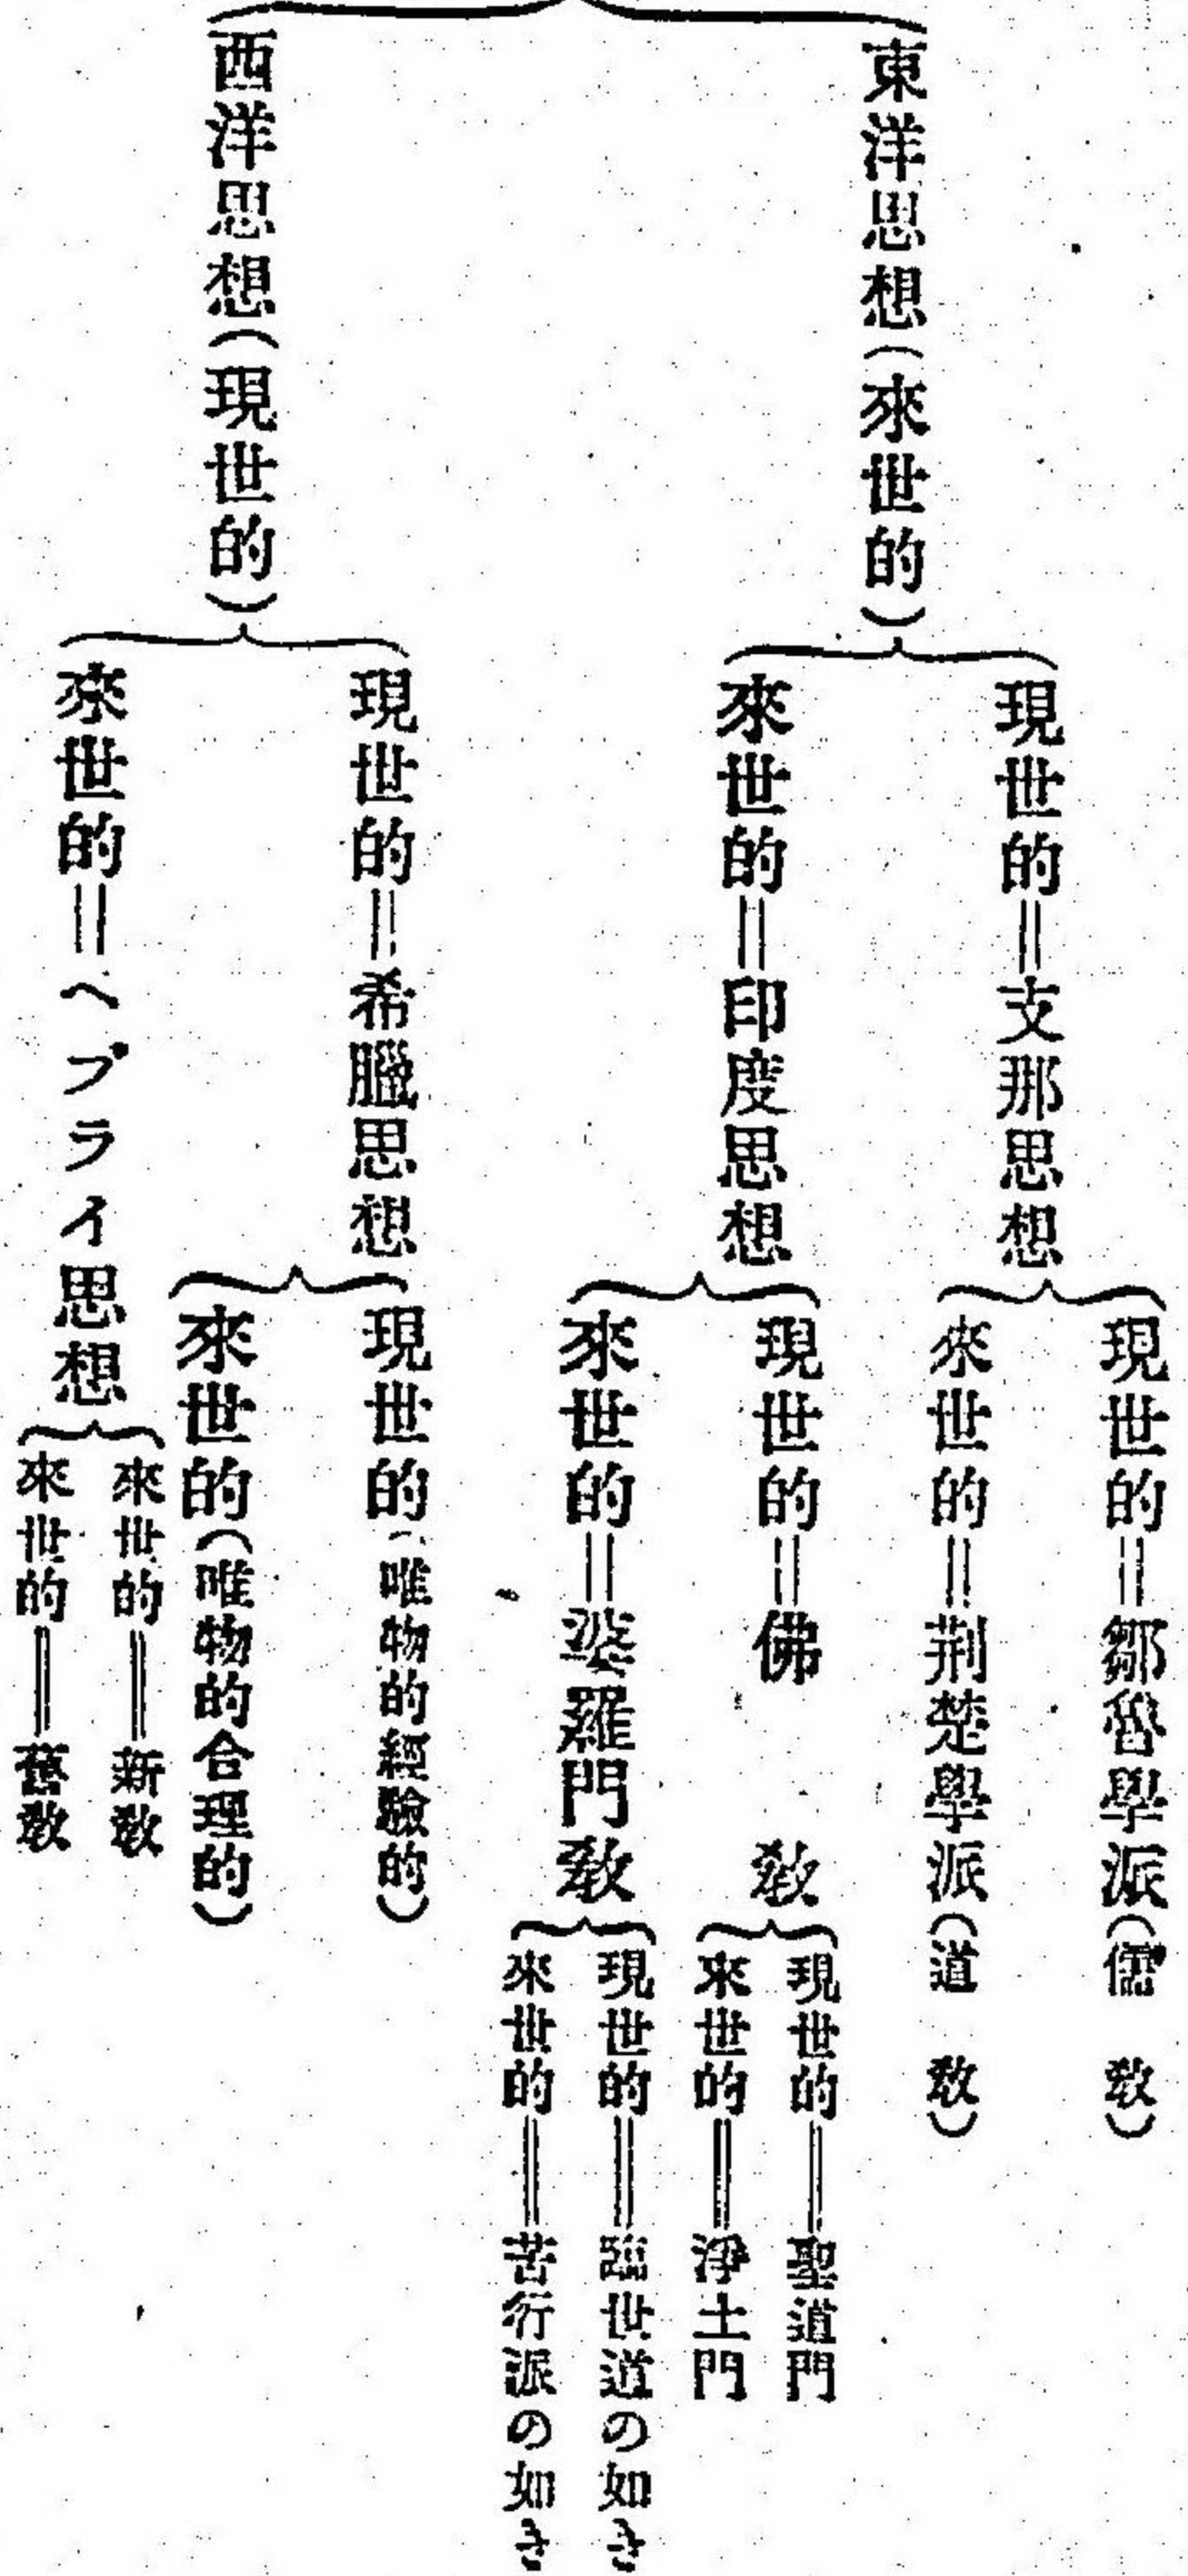 東洋思想(來世的)
現世的＝支那思想
現世的＝鄒魯學派(儒　敎)
來世的＝荆楚學派(道　敎)
來世的＝印度思想
現世的＝佛　　敎
現世的＝聖道門
來世的＝淨土門
來世的＝婆羅門敎
現世的＝臨世道の如き
來世的＝苦行派の如き
西洋思想(現世的)
現世的＝希臘思想
現世的(唯物的經驗的)
來世的(唯物的合理的)
來世的＝ヘブライ思想
來世的＝新敎
來世的＝舊敎